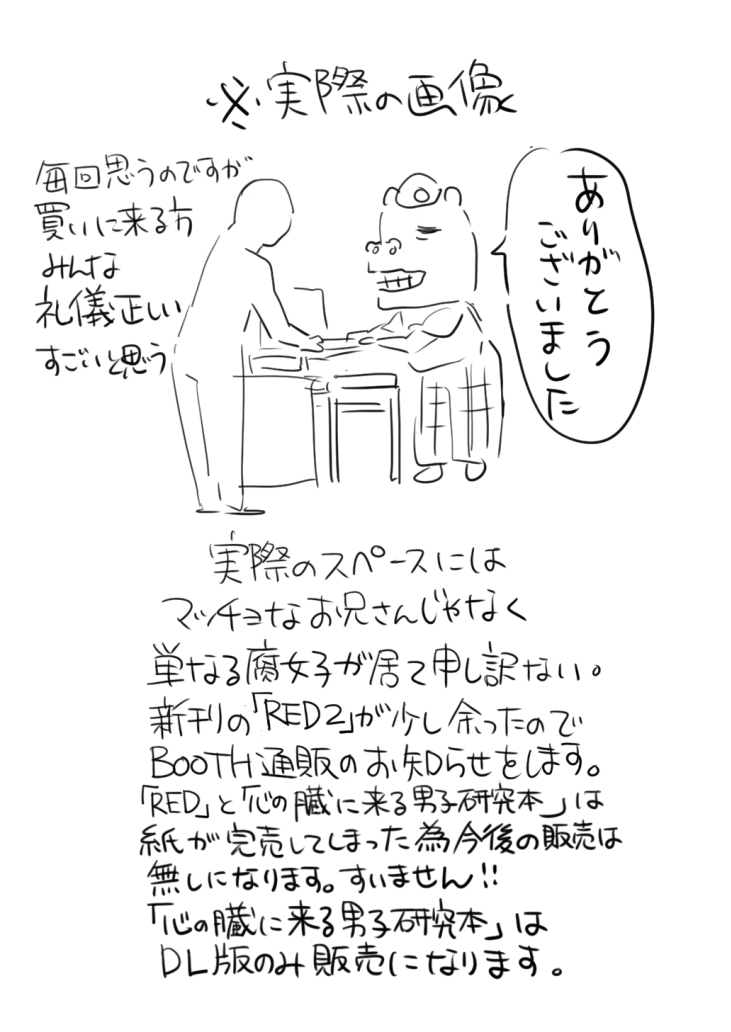 ※実際の画像
毎回思うのですが
買いに来る方
みんな
礼儀正しい
すごいと思う
ありがとう
ございました
実際のスペースには
マッチョなお兄さんじゃなく
単なる腐女子が居て申し訳ない。
新刊の「RED2」が少し余ったので
BOOTH通販のお知らせをします。
「RED」と「心の臓に来る男子研究本」は
紙が完売してしまった為今後の販売は
無しになります。すいません!!
「心の臓に来る男子研究本」は
DL版のみ販売になります。